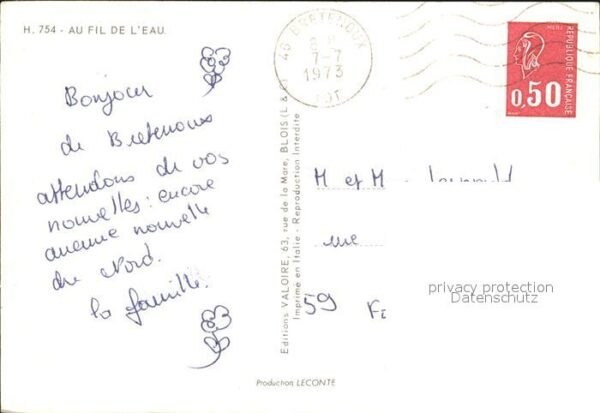 H. 754 - AU FIL DE L'EAU.
Bonjour
de Bretenoux
attendons de vos
nouvelles : encore
aucune nouvelle
du Nord.
la famille.
Editions VALOIRE, 63, rue de la Mare, BLOIS (L & C)
Imprimé en Italie - Reproduction Interdite
Production LECONTE
46 BRETENOUX
7-7
1973
LOT
REPUBLIQUE FRANÇAISE
0,50
M et M
59
privacy protection
Datenschutz